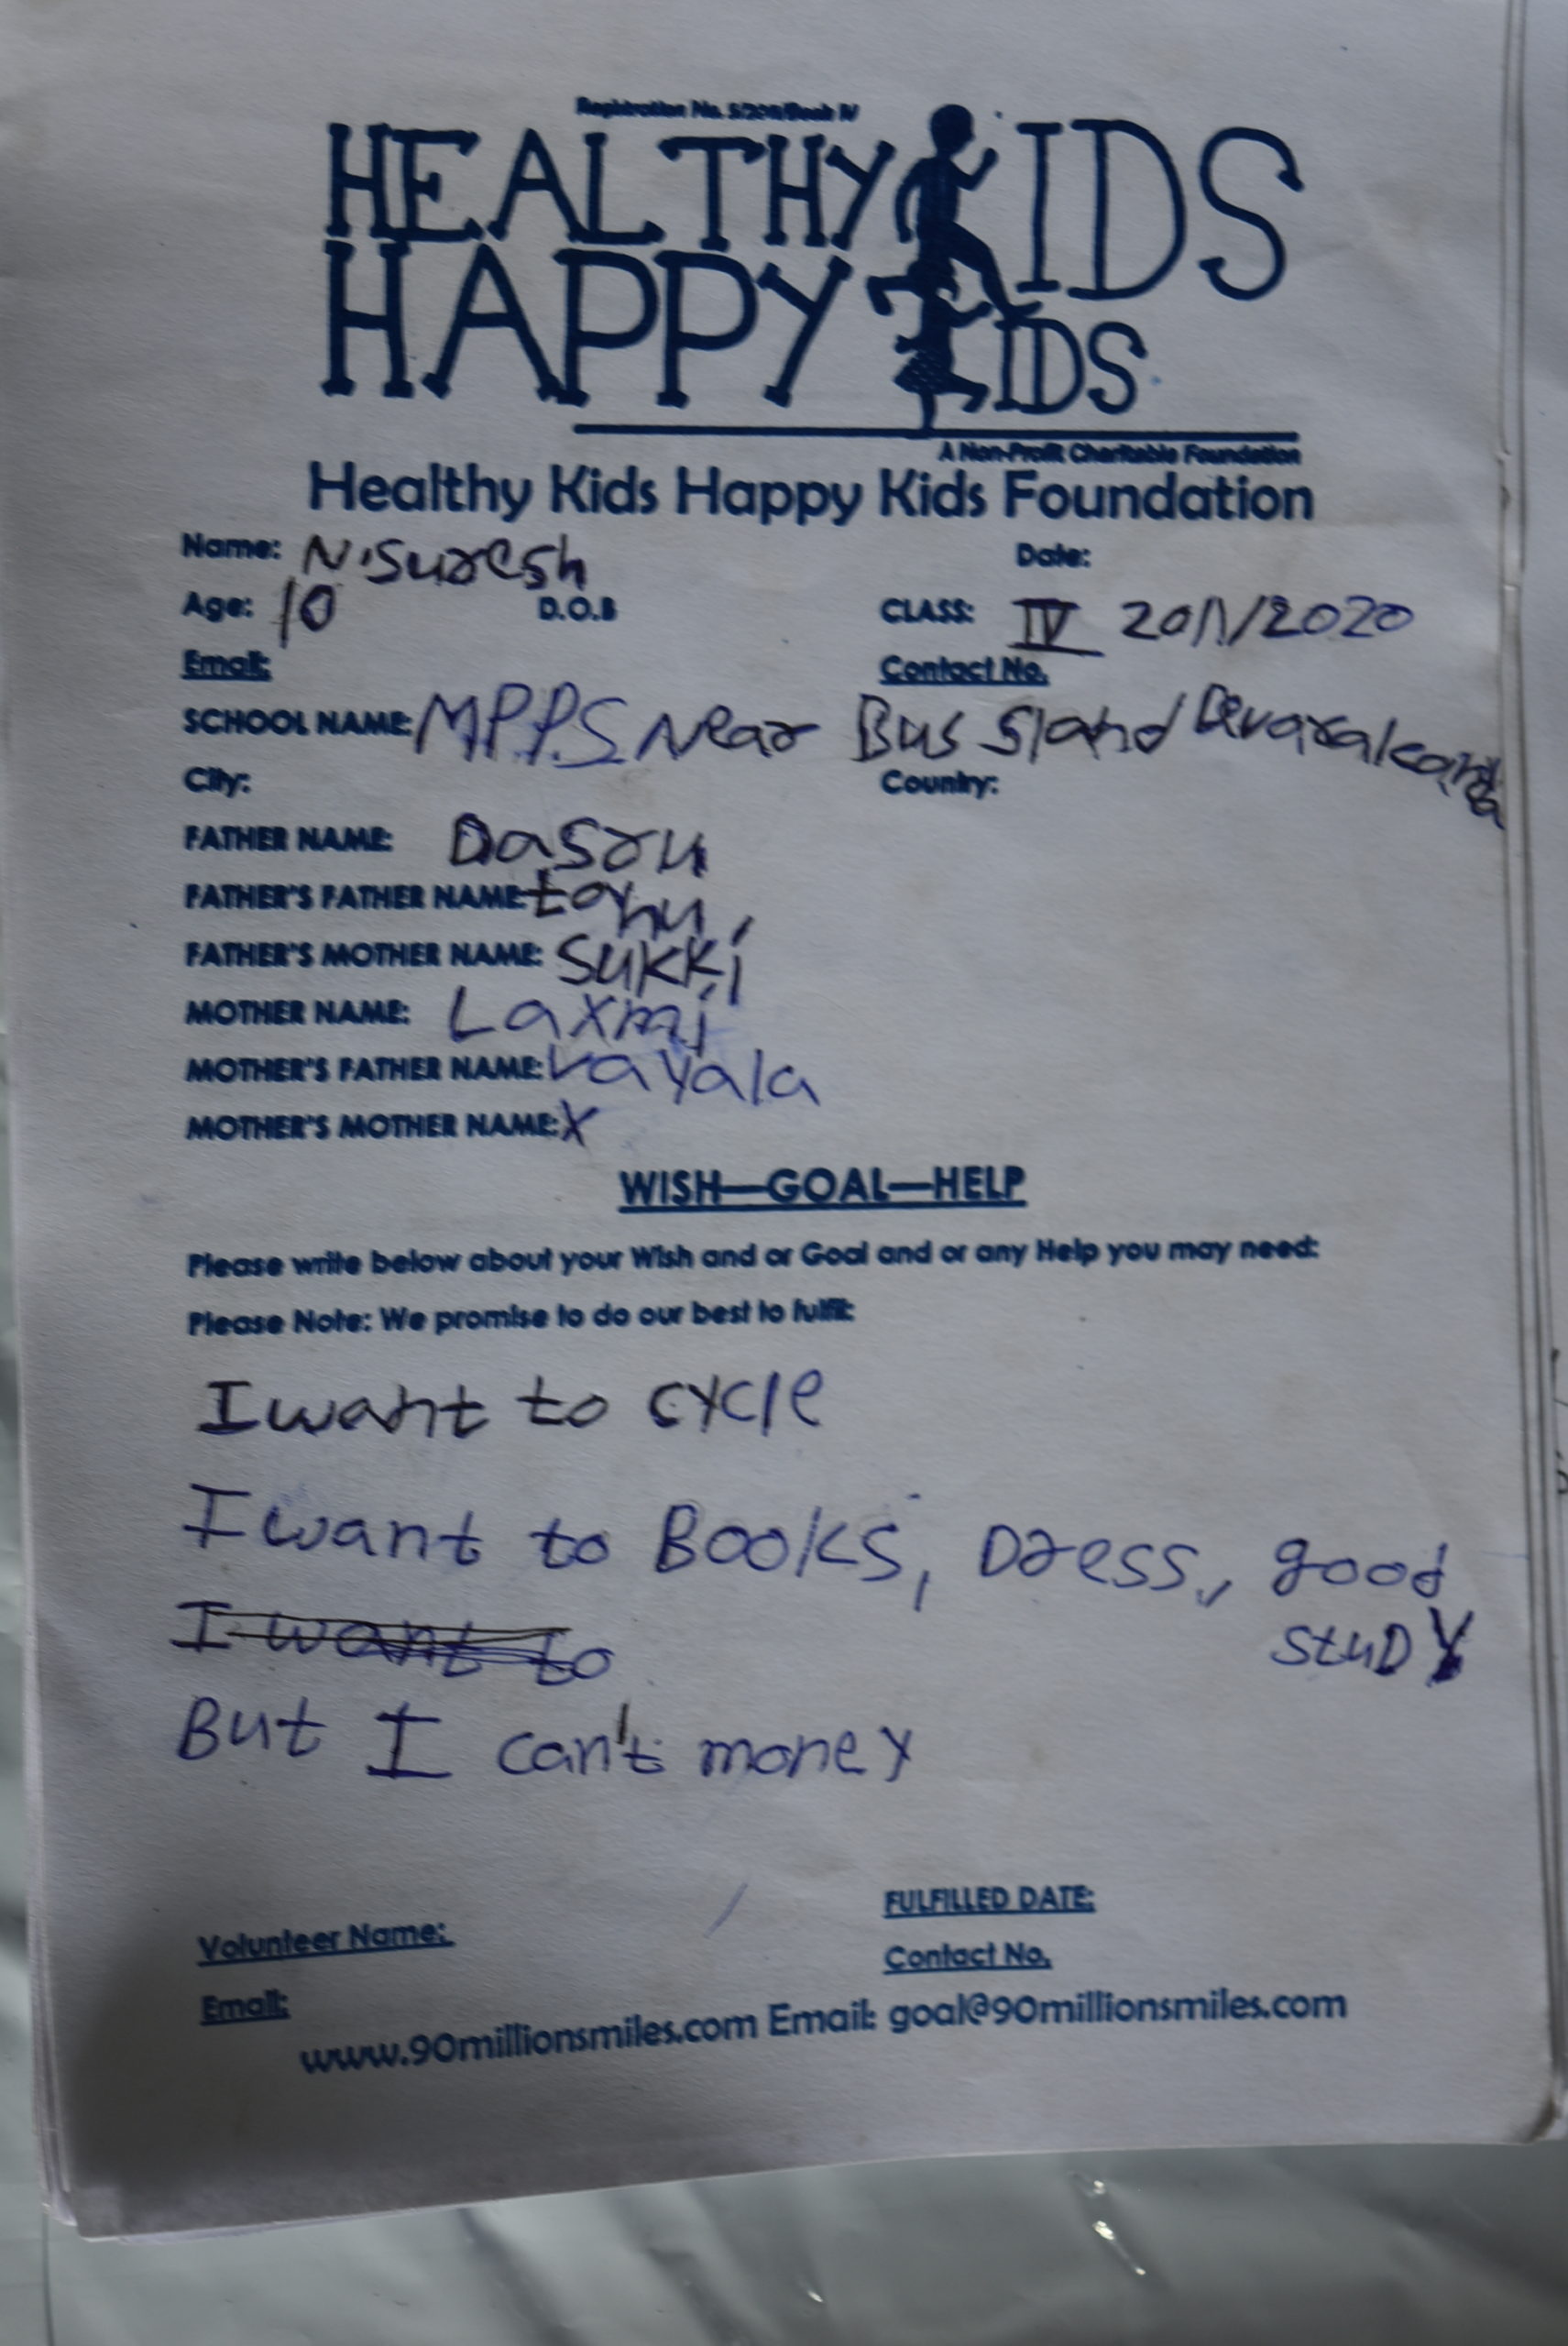 HEALTHY KIDS
HAPPY KIDS
A Non-Profit Charitable Foundation
Healthy Kids Happy Kids Foundation
Name: N.Suresh Date:
Age: 10 D.O.B CLASS: IV 20/1/2020
Email: Contact No.
SCHOOL NAME: M.P.P.S Near Bus Stand
City: Country:
FATHER NAME: Dasru
FATHER'S FATHER NAME:
FATHER'S MOTHER NAME: Sukki
MOTHER NAME: Laxmi
MOTHER'S FATHER NAME: vayala
MOTHER'S MOTHER NAME: X
WISH—GOAL—HELP
Please write below about your Wish and or Goal and or any Help you may need:
Please Note: We promise to do our best to fulfil:
I want to cycle
I want to Books, Dress, good
stuDY
I want to
But I can't money
FULFILLED DATE:
Volunteer Name:
Contact No.
Email:
www.90millionsmiles.com Email: goal@90millionsmiles.com